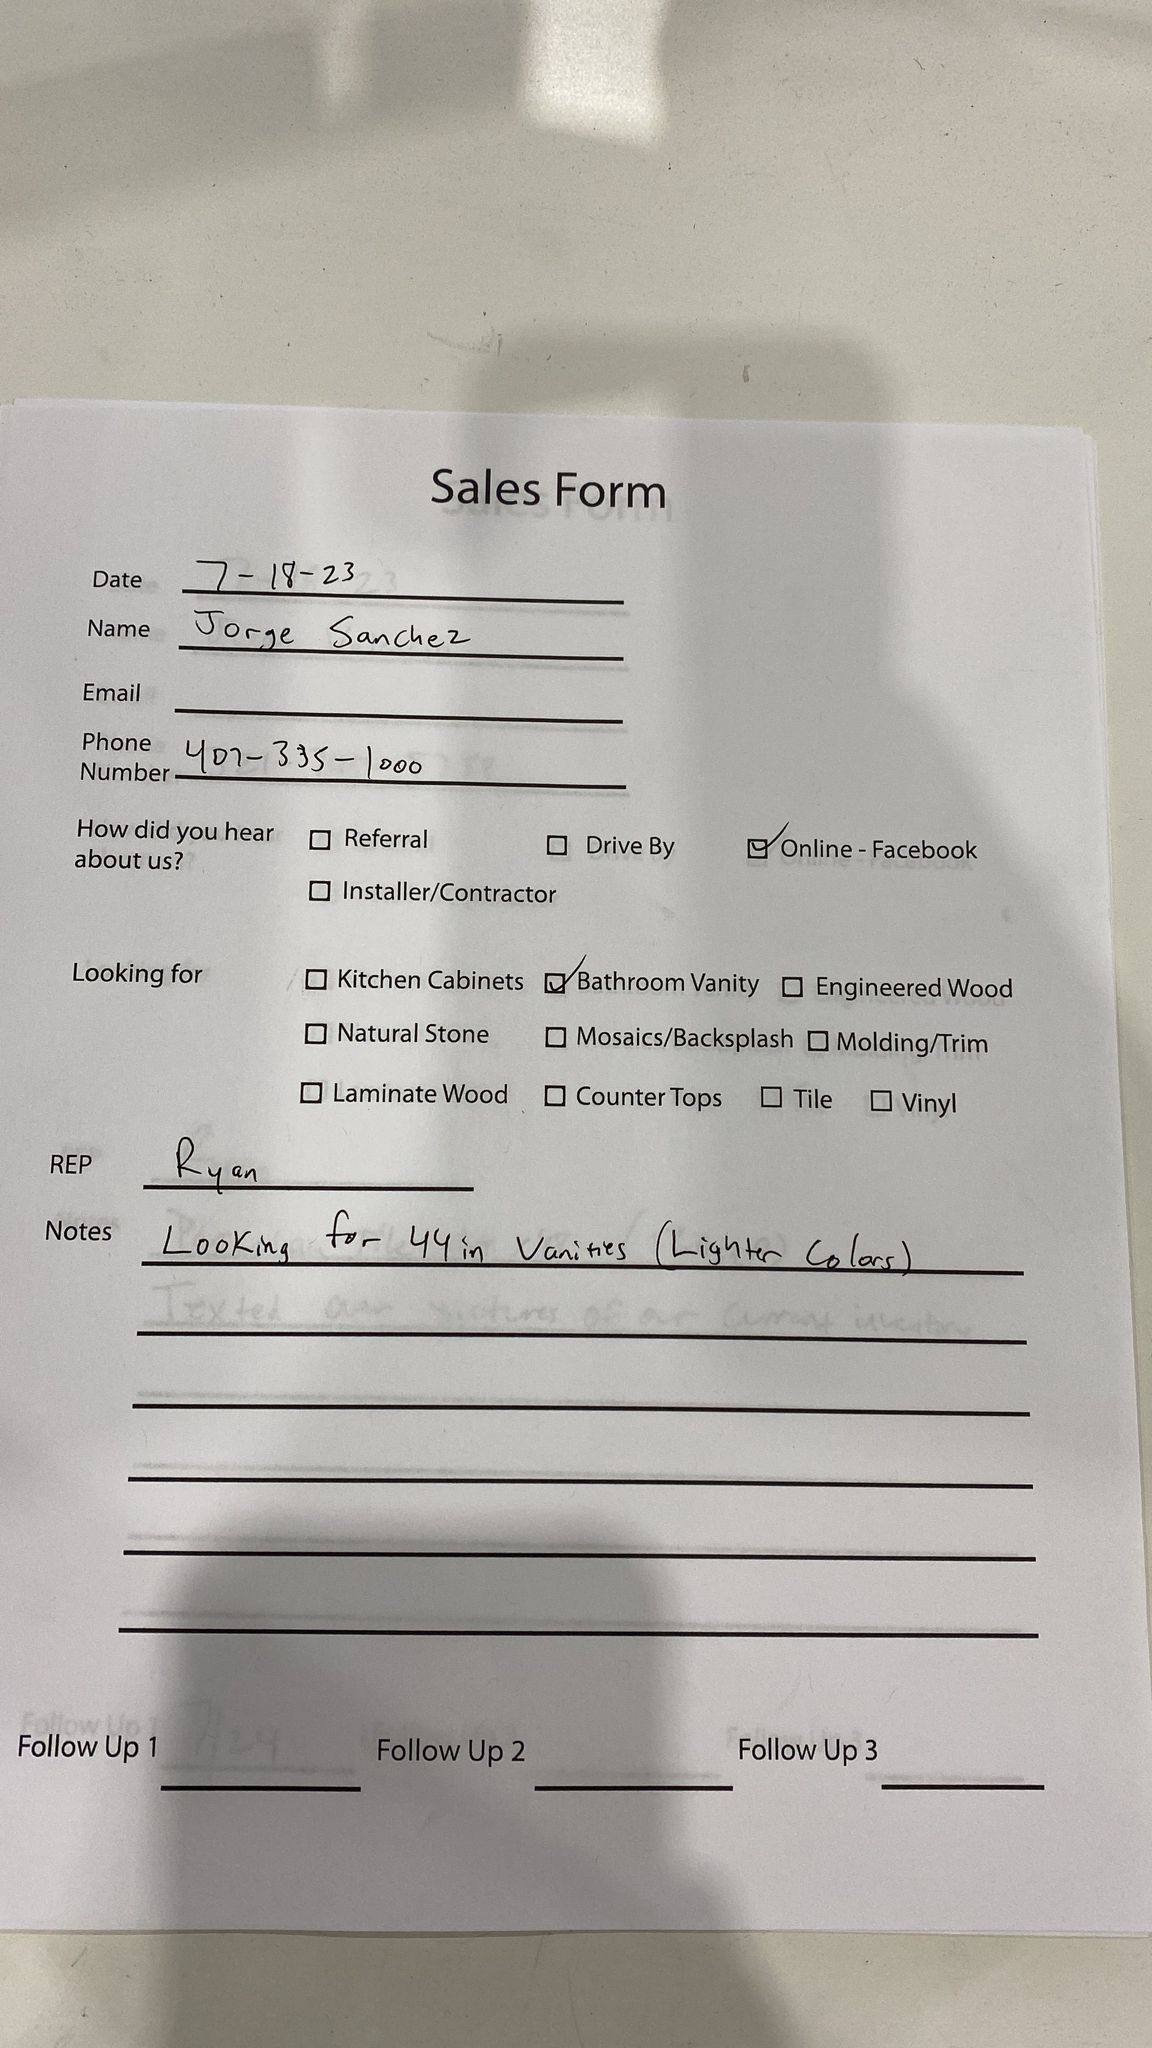 Sales Form
Date 7-18-23
Name Jorge Sanchez
Email
Phone
Number 407-335-1000
How did you hear
about us?
☐ Referral ☐ Drive By ☑ Online - Facebook
☐ Installer/Contractor
Looking for ☐ Kitchen Cabinets ☑ Bathroom Vanity ☐ Engineered Wood
☐ Natural Stone ☐ Mosaics/Backsplash ☐ Molding/Trim
☐ Laminate Wood ☐ Counter Tops ☐ Tile ☐ Vinyl
REP Ryan
Notes Looking for 44in Vanities (Lighter Colors)
Follow Up 1 Follow Up 2 Follow Up 3